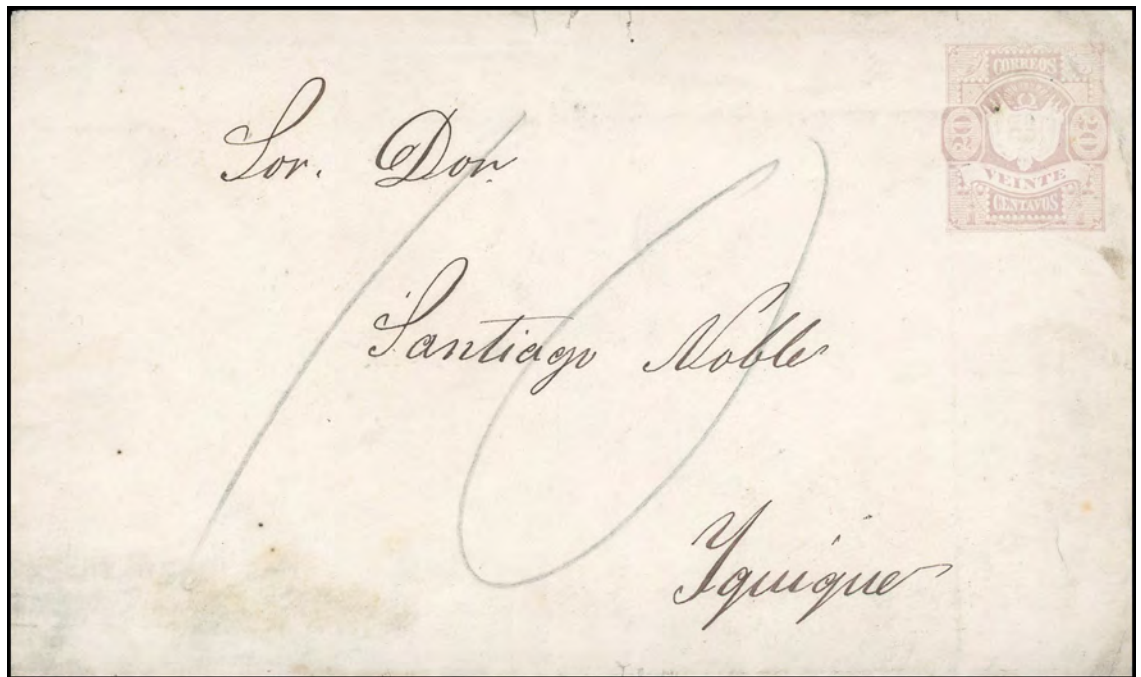 CORREOS
20 20
VEINTE
CENTAVOS
Sor. Don.
Santiago Noble
Yquique
10